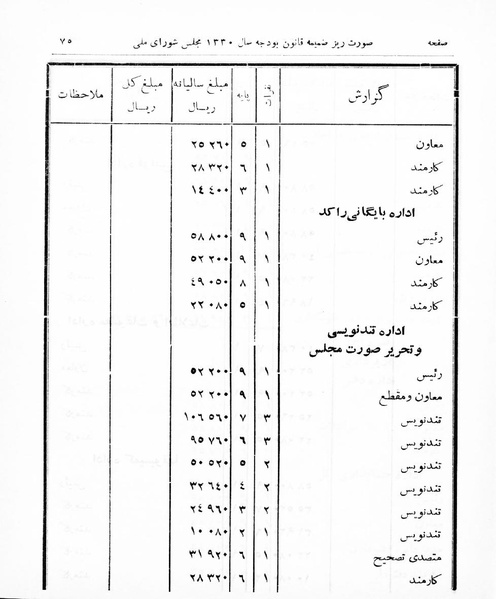 صفحه صورت ریز ضمیمه قانون بودجه سال ۱۳۳۰ مجلس شورای ملی ۷۵
گزارش نفرات پایه مبلغ سالیانه ریال مبلغ کل ریال ملاحظات
معاون ۱ ۵ ۲۵ ۲۶۰
کارمند ۱ ۶ ۲۸ ۳۲۰
کارمند ۱ ۳ ۱۴ ۴۰۰
اداره بایگانی راکد
رئیس ۱ ۹ ۵۸ ۸۰۰
معاون ۱ ۹ ۵۲ ۲۰۰
کارمند ۱ ۸ ۴۹ ۰۵۰
کارمند ۱ ۵ ۲۲ ۰۸۰
اداره تندنویسی
و تحریر صورت مجلس
رئیس ۱ ۹ ۵۲ ۲۰۰
معاون و مقطع ۱ ۹ ۵۲ ۲۰۰
تندنویس ۳ ۷ ۱۰۶ ۵۶۰
تندنویس ۳ ۶ ۹۵ ۷۶۰
تندنویس ۲ ۵ ۵۰ ۵۲۰
تندنویس ۲ ۴ ۳۲ ۶۴۰
تندنویس ۲ ۳ ۲۴ ۹۶۰
تندنویس ۱ ۲ ۱۰ ۰۸۰
متصدی تصحیح ۱ ۶ ۳۱ ۹۲۰
کارمند ۱ ۶ ۲۸ ۳۲۰